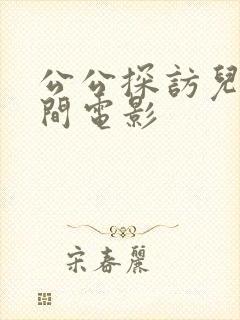 公公探訪兒
間電影
宋春麗